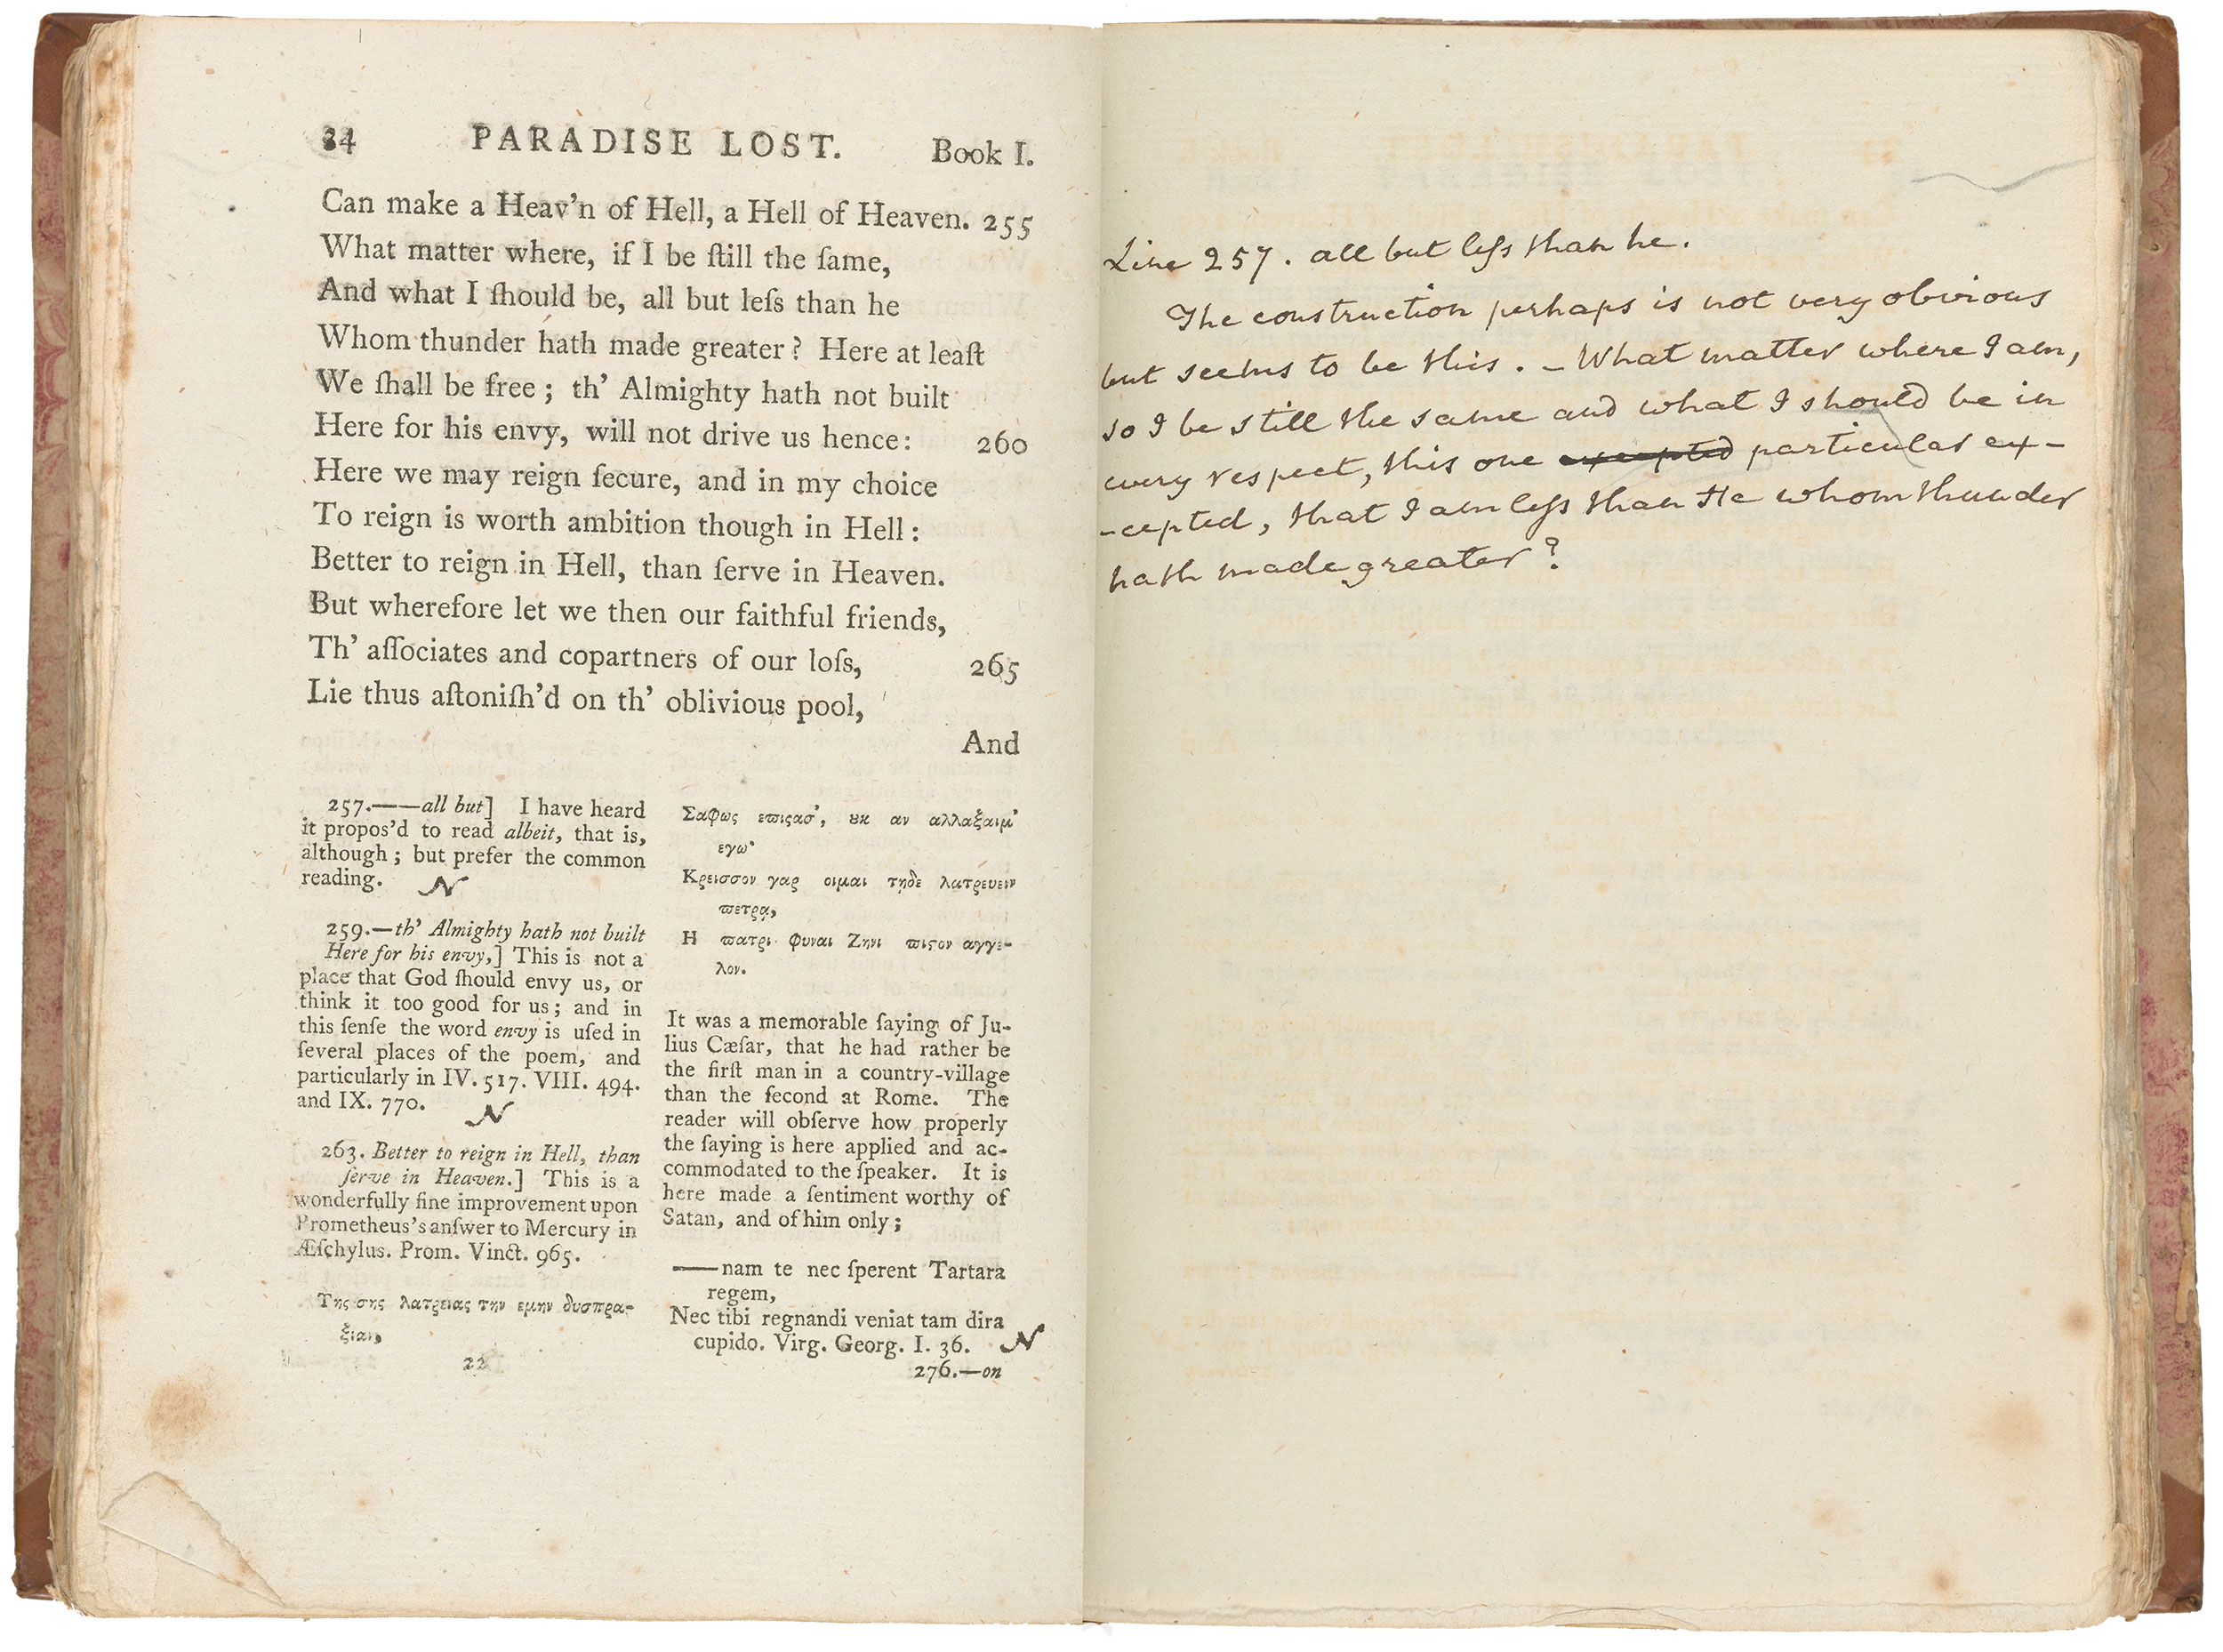 34 PARADISE LOST. Book I.
Can make a Heav'n of Hell, a Hell of Heaven. 255
What matter where, if I be ſtill the ſame,
And what I ſhould be, all but leſs than he
Whom thunder hath made greater? Here at leaſt
We ſhall be free; th' Almighty hath not built
Here for his envy, will not drive us hence: 260
Here we may reign ſecure, and in my choice
To reign is worth ambition though in Hell:
Better to reign in Hell, than ſerve in Heaven.
But wherefore let we then our faithful friends,
Th' aſſociates and copartners of our loſs, 265
Lie thus aſtoniſh'd on th' oblivious pool,
And
257.——all but] I have heard
it propos'd to read albeit, that is,
although; but prefer the common
reading. N
259.—th' Almighty hath not built
Here for his envy,] This is not a
place that God ſhould envy us, or
think it too good for us; and in
this ſenſe the word envy is uſed in
ſeveral places of the poem, and
particularly in IV. 517. VIII. 494.
and IX. 770. N
263. Better to reign in Hell, than
ſerve in Heaven.] This is a
wonderfully fine improvement upon
Prometheus's anſwer to Mercury in
Æſchylus. Prom. Vinct. 965.
Της σης λατρειας την εμην δυσπρα-
ξιαν,
22
Σαφως επιϛασ', ȣκ αν αλλαξαιμ'
εγω·
Κρεισσον γαρ οιμαι τῃδε λατρευειν
ϖετρᾳ,
Η ϖατρι φυναι Ζηνι ϖιϛον αγγε-
λον.
It was a memorable ſaying of Ju-
lius Cæſar, that he had rather be
the firſt man in a country-village
than the ſecond at Rome. The
reader will obſerve how properly
the ſaying is here applied and ac-
commodated to the ſpeaker. It is
here made a ſentiment worthy of
Satan, and of him only;
——nam te nec ſperent Tartara
regem,
Nec tibi regnandi veniat tam dira
cupido. Virg. Georg. I. 36. N
276.—on
Line 257. all but leſs than he.
The construction perhaps is not very obvious
but seems to be this. – What matter where I am,
so I be still the same and what I should be in
every respect, this one excepted particular ex-
-cepted, that I am leſs than He whom thunder
hath made greater?